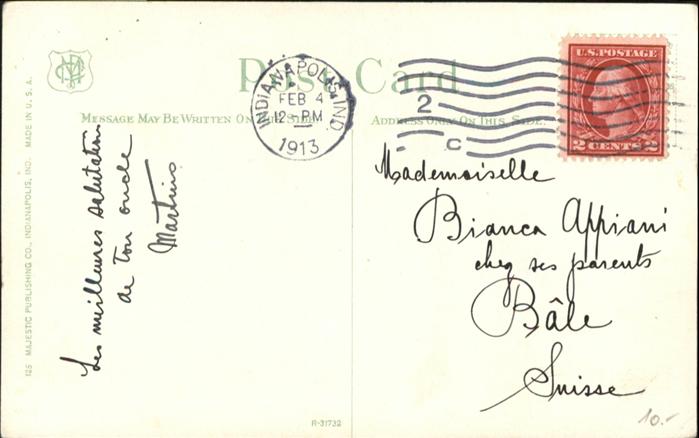 Post Card
MESSAGE MAY BE WRITTEN ON THIS SIDE.
ADDRESS ONLY ON THIS SIDE.
INDIANAPOLIS, IND.
FEB 4
12 PM
1913
2
C
U.S. POSTAGE
2 CENTS 2
Les meilleures salutations
de ton oncle
Martino
Mademoiselle
Bianca Appiani
chez ses parents
Bâle
Suisse
125 MAJESTIC PUBLISHING CO., INDIANAPOLIS, IND. MADE IN U.S.A.
R-31732
10.-